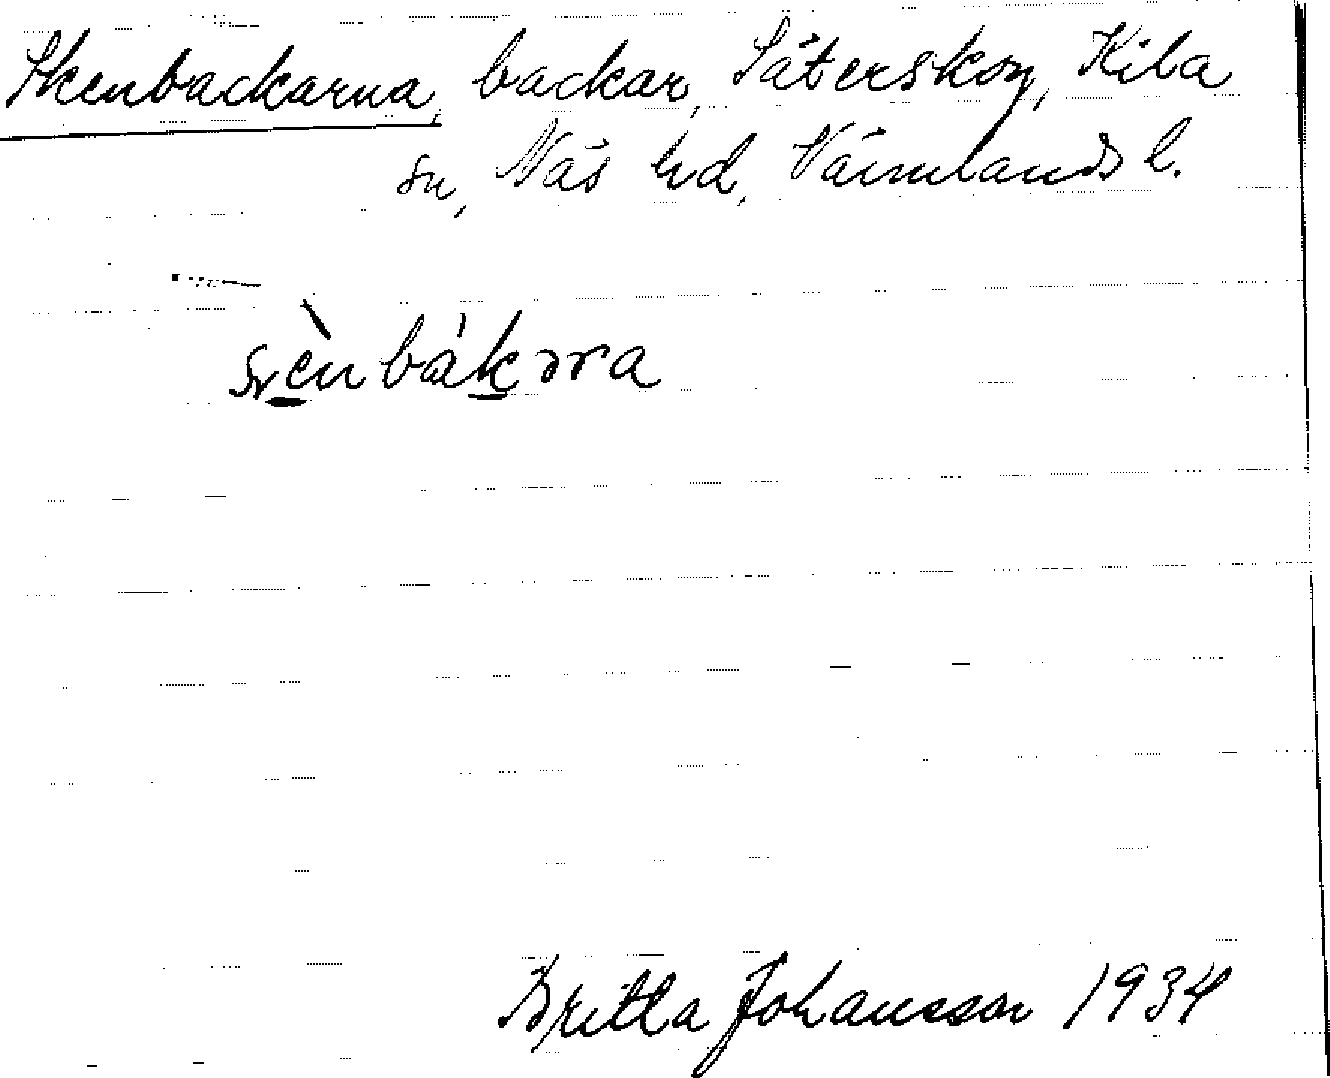 Skenbackarna, backar, Säterskog, Kila
sn, Näs hd, Värmlands l.
Britta Johansson 1934